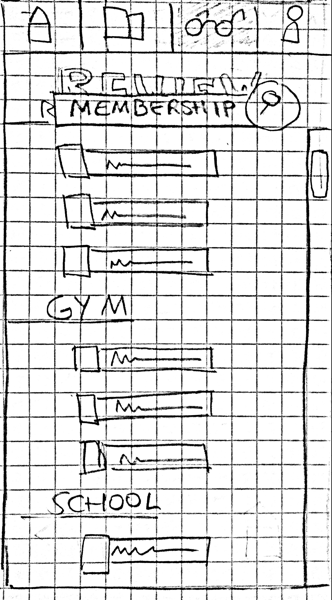 REVIEW
MEMBERSHIP
GYM
SCHOOL